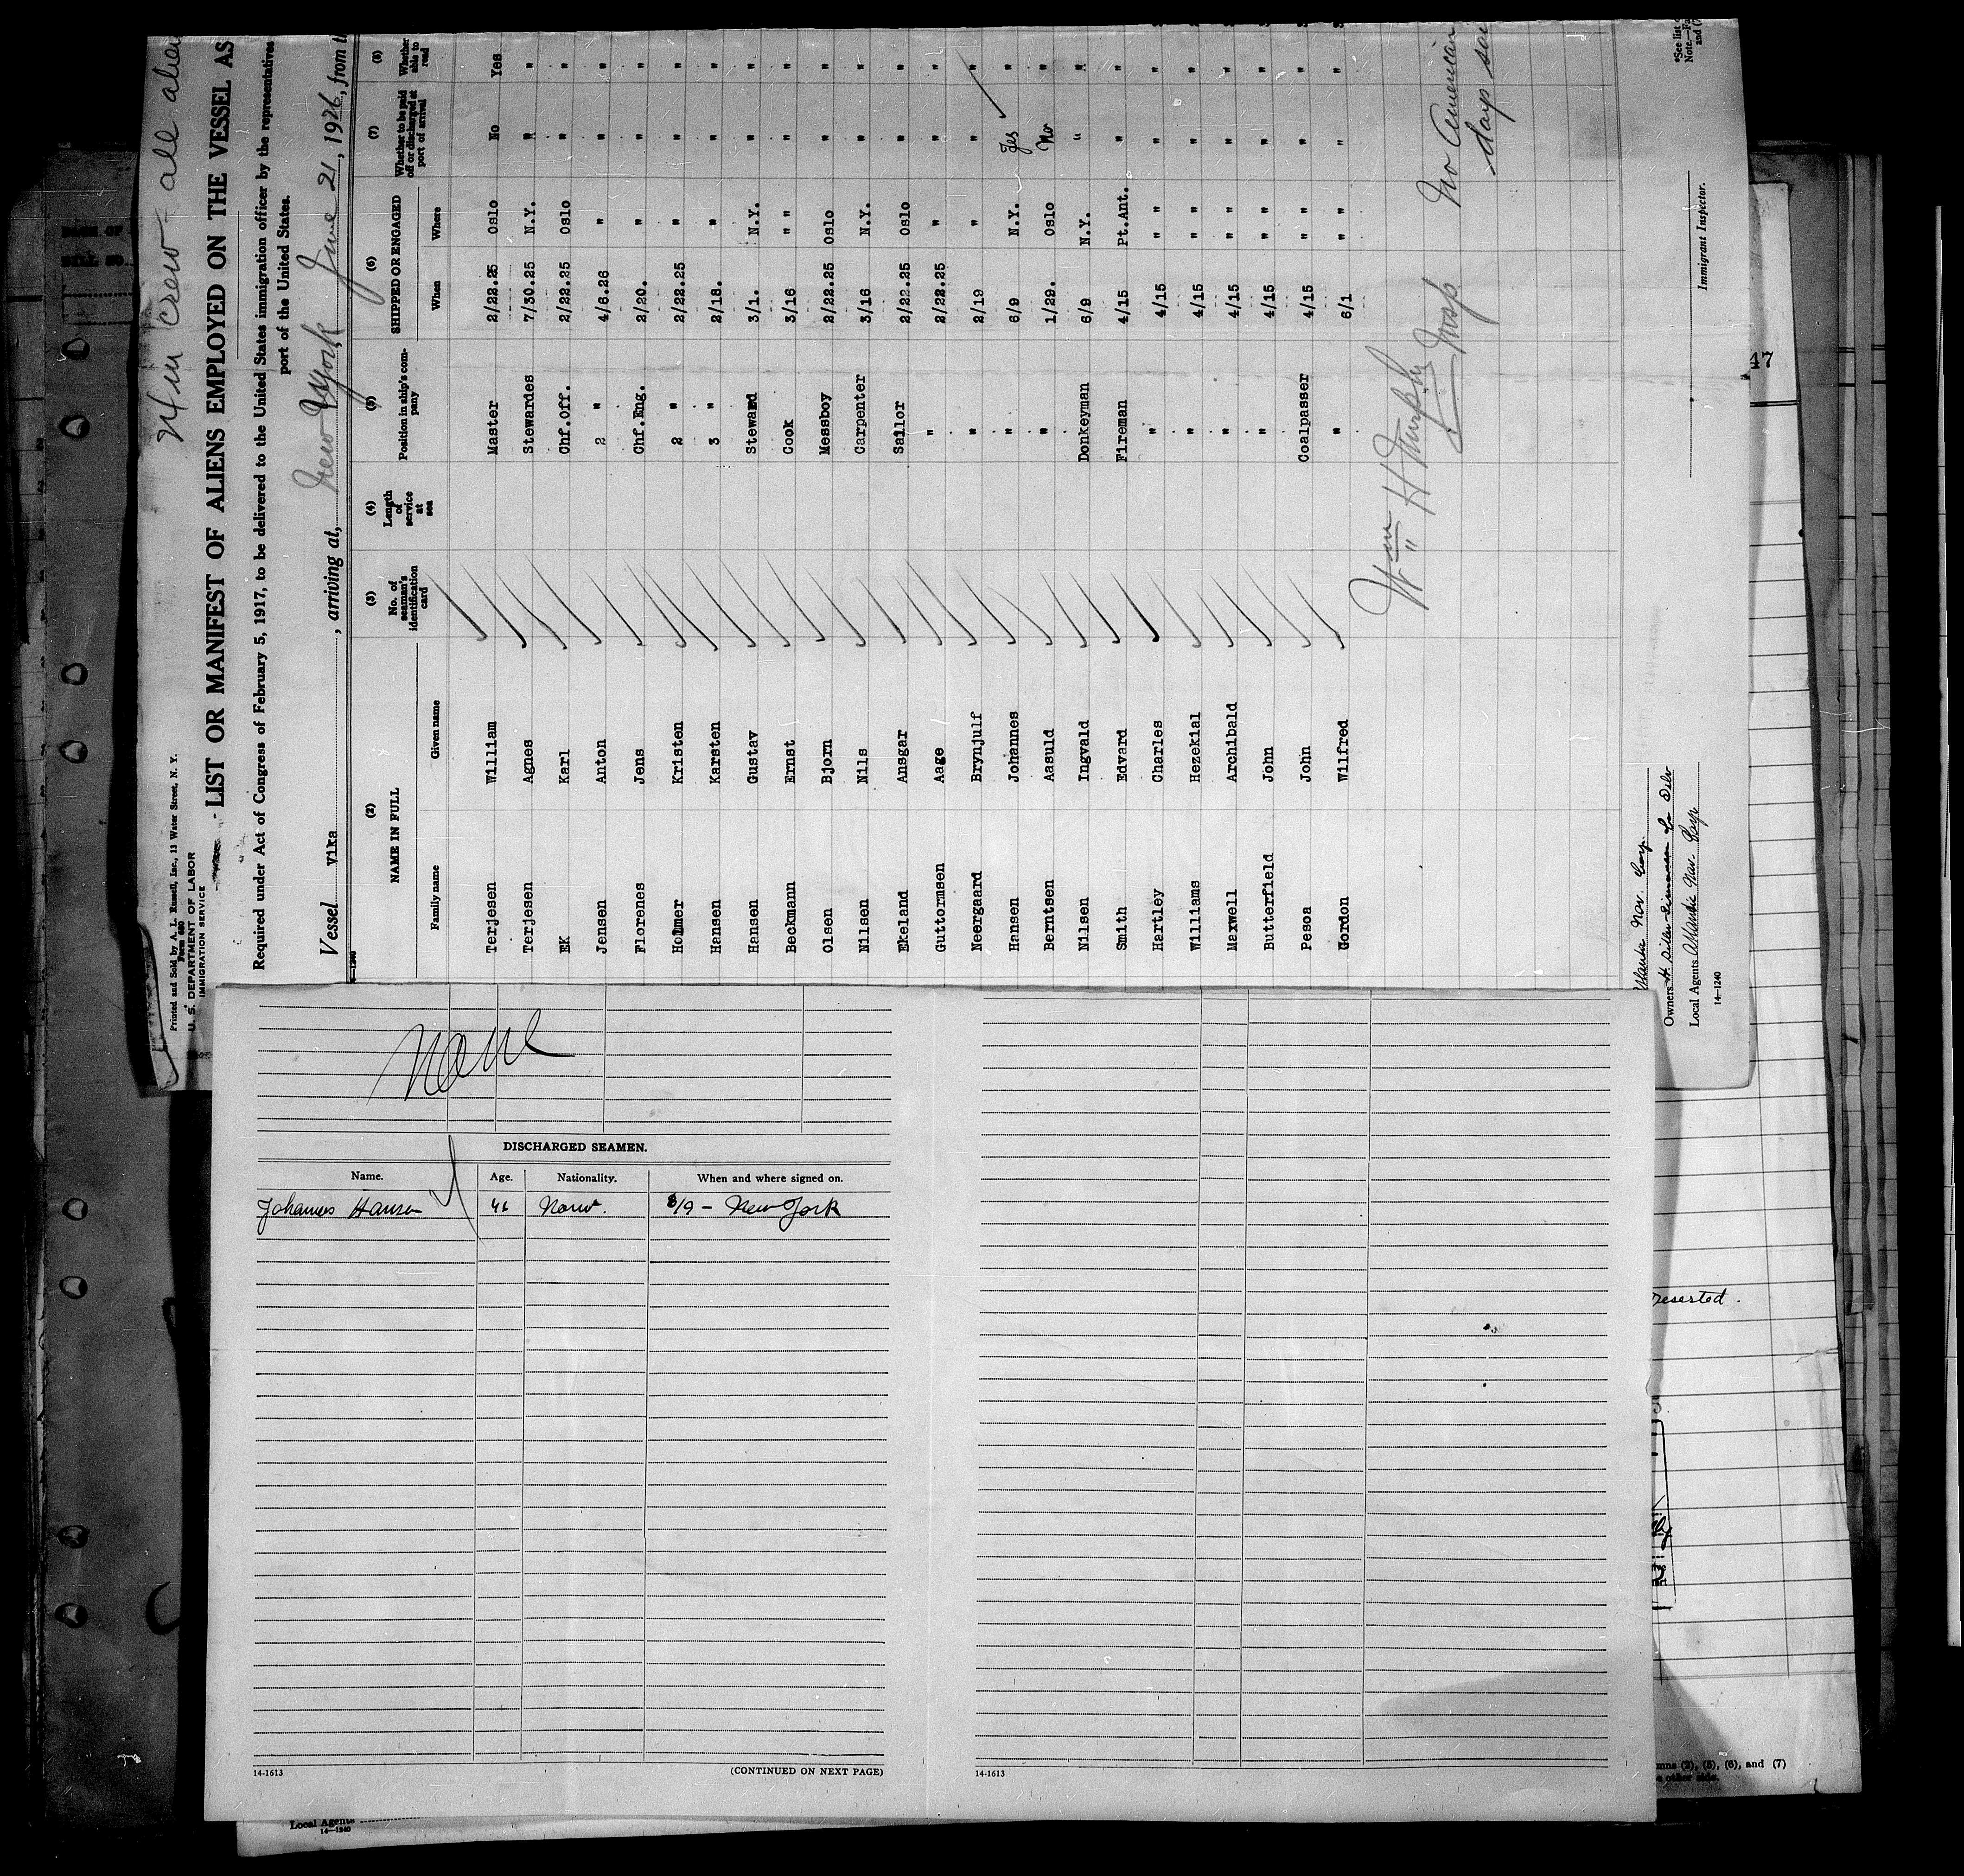 Printed and Sold by A. L. Russell, Inc., 13 Water Street, N. Y.
Form 680
U. S. DEPARTMENT OF LABOR
IMMIGRATION SERVICE
crew - all
LIST OR MANIFEST OF ALIENS EMPLOYED ON THE VESSEL AS
Required under Act of Congress of February 5, 1917, to be delivered to the United States immigration officer by the representatives
port of the United States.
Vessel Vika, arriving at, New York June 21, 1926, from
(2) (3) (4) (5) (6) (7) (8)
NAME IN FULL No. of seaman's identification card Length of service at sea Position in ship's company SHIPPED OR ENGAGED Whether to be paid off or discharged at port of arrival Whether able to read
Family name Given name When Where
Terjesen William Master 2/22.25 Oslo No Yes
Terjesen Agnes Stewardes 7/30.25 N.Y. " "
EK Karl Chf.Off. 2/22.25 Oslo " "
Jensen Anton 2 " 4/6.26 " " "
Florenes Jens Chf.Eng. 2/20. " " "
Holmer Kristen 2 " 2/22.25 " " "
Hansen Karsten 3 " 2/18. " " "
Hansen Gustav Steward 3/1. N.Y. " "
Beckmann Ernst Cook 3/16 " " " "
Olsen Bjorn Messboy 2/22.25 Oslo " "
Nilsen Nils Carpenter 3/16 N.Y. " "
Ekeland Ansgar Sailor 2/22.25 Oslo " "
Guttormsen Aage " 2/22.25 " " "
Neergaard Brynjulf " 2/19 " " "
Hansen Johannes " 6/9 N.Y. Yes "
Berntsen Aasuld " 1/29. Oslo No "
Nilsen Ingvald Donkeyman 6/9 N.Y. " "
Smith Edvard Fireman 4/15 Pt.Ant. " "
Hartley Charles " 4/15 " " " "
Williams Hezekial " 4/15 " " " "
Maxwell Archibald " 4/15 " " " "
Butterfield John " 4/15 " " " "
Pesoa John Coalpasser 4/15 " " " "
Gordon Wilfred " 6/1 " " " "
Wm H Murphy
Insp
No American
days
Immigrant Inspector.
*See list
Nav. Corp.
Owners
Local Agents Atlantic Nav. Corp
14—1240
None
DISCHARGED SEAMEN.
Name. Age. Nationality. When and where signed on.
Johannes Hansen 46 Norw. 6/9 - New York
14-1613
(CONTINUED ON NEXT PAGE)
14-1613
47
Deserted.
(2), (5), (6), and (7)
other side.
Local Agents
14—1240